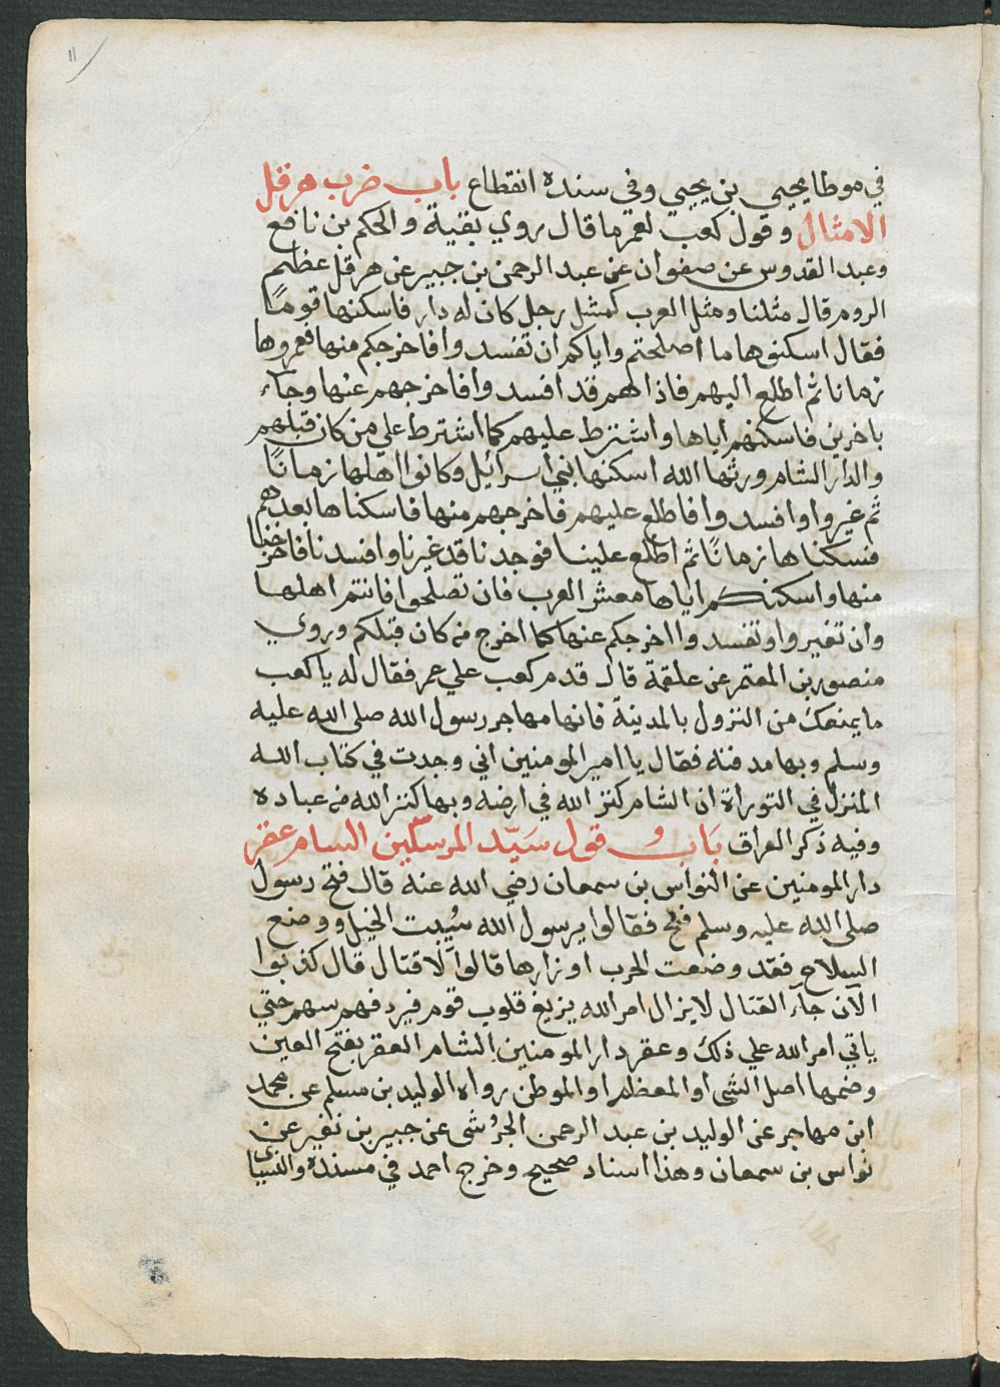 ١١
في موطا يحيى بن يحيي وفي سنده انقطاع باب ضرب هرقل
الامثال وقول كعب لعمر ما قال روي بقية والحكم بن نافع
وعبد القدوس عن صفوان عن عبد الرحمن بن جبير عن هرقل عظيم
الروم قال مثلنا ومثل العرب كمثل رجل كان له دار فاسكنها قومًا
فقال اسكنوها ما اصلحتم واياكم ان تفسدوا فاخرجكم منها فعمروها
زمانا ثم اطلع اليهم فاذا هم قد افسدوا فاخرجهم عنها وجآء
باخرين فاسكنهم اياها واشترط عليهم كما اشترط علي من كان قبلهم
والدار الشام وربها الله اسكنها بني اسرائيل وكانوا اهلها زمانًا
ثم غيروا وافسدوا فاطلع عليهم فاخرجهم منها فاسكناها بعدهم
فسكناها زمانًا ثم اطلع علينا فوجدنا قد غيرنا وافسدنا فاخرجنا
منها واسكنكم اياها معشر العرب فان تصلحوا فانتم اهلها
وان تغيروا وتفسدوا اخرجكم عنها كما اخرج من كان قبلكم وروي
منصور بن المعتمر عن علقمة قال قدم كعب علي عمر فقال له يا كعب
ما يمنعك من النزول بالمدينة فانها مهاجر رسول الله صلى الله عليه
وسلم وبها مدفنه فقال يا امير المومنين اني وجدت في كتاب الله
المنزل في التوراة ان الشام كنز الله في ارضه وبها كنز الله من عباده
وفيه ذكر العراق بَاب و قول سَيّد المرسَلين الشام عقر
دار المومنين عن النواس بن سمعان رضي الله عنه قال فتح رسول
صلى الله عليه وسلم فتح فقالوا يرسول الله سُيبت الخيل ووضع
السلاح فقد وضعت الحرب اوزارها قالوا لا قتال قال كذبوا
الآن جآء القتال لا يزال امر الله يزيغ قلوب قوم فيرد فهم سهم حتي
ياتي امر الله علي ذلك وعقر دار المومنين بالشام العقر بفتح العين
وضمها اصل الشي او المعظم او الموطن رواه الوليد بن مسلم عن محمد
ابن مهاجر عن الوليد بن عبد الرحمن الجُرشي عن جبير بن نفير عن
نواس بن سمعان وهذا اسناد صحيح وخرج احمد في مسنده والنسائي